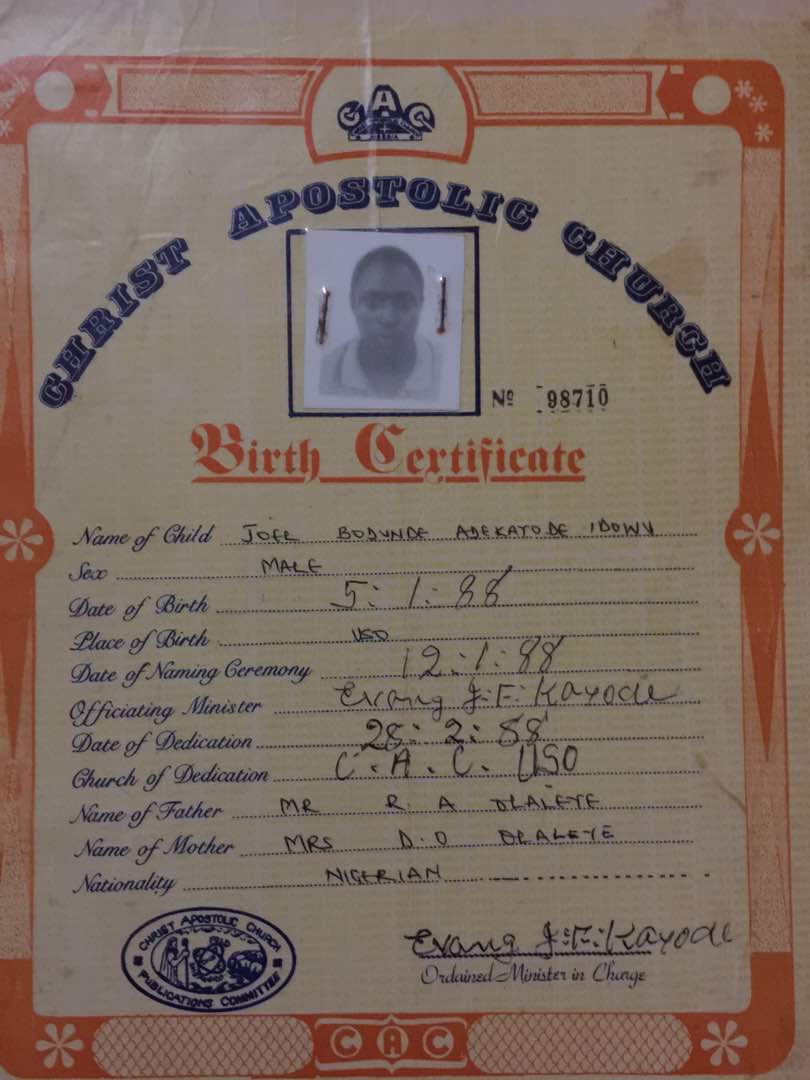 CAC
CHRIST APOSTOLIC CHURCH
Nº 98710
Birth Certificate
Name of Child JOEL BODUNDE ADEKAYODE IDOWU
Sex MALE
Date of Birth 5: 1: 88
Place of Birth USO
Date of Naming Ceremony 12:1:88
Officiating Minister Evang J.F. Kayode
Date of Dedication 28: 2: 88
Church of Dedication C.A.C. USO
Name of Father MR R. A OLALEYE
Name of Mother MRS D.O OLALEYE
Nationality NIGERIAN
CHRIST APOSTOLIC CHURCH
PUBLICATIONS COMMITTEE
Evang J.F. Kayode
Ordained Minister in Charge
CAC